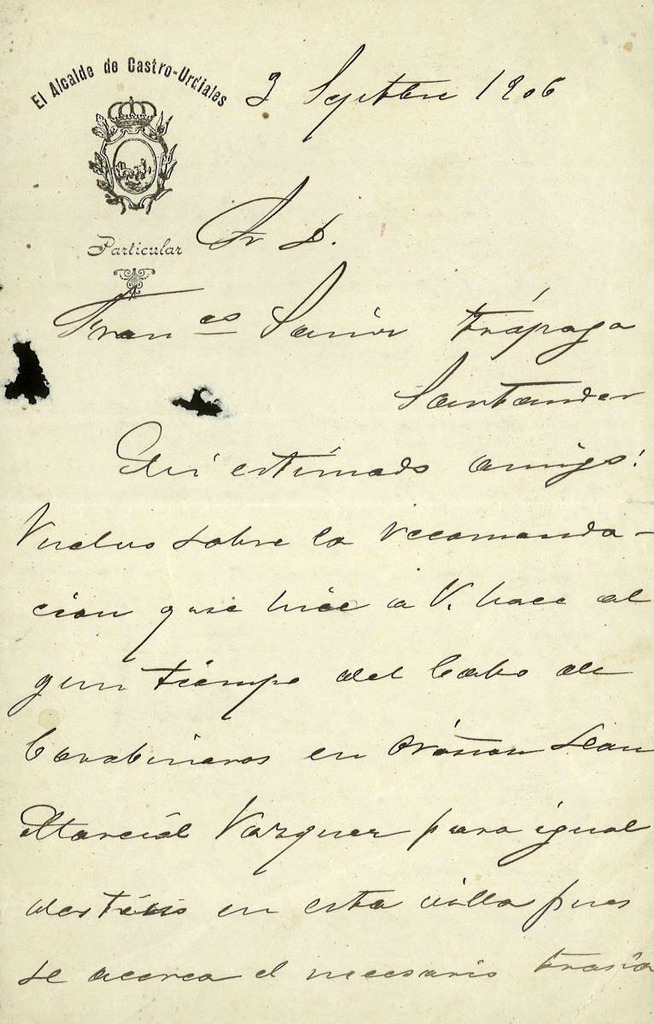 El Alcalde de Castro-Urdiales
3 Septbre 1906
Particular
Sr D.
Franco Sainz Trápaga
Santander
Mi estimado amigo:
Vuelvo sobre la recomenda-
cion que hice a V. hace al
gun tiempo del Cabo de
Carabineros en Oriñon Juan
Marcial Vazquez para igual
destino en esta villa pues
se acerca el necesario trasla